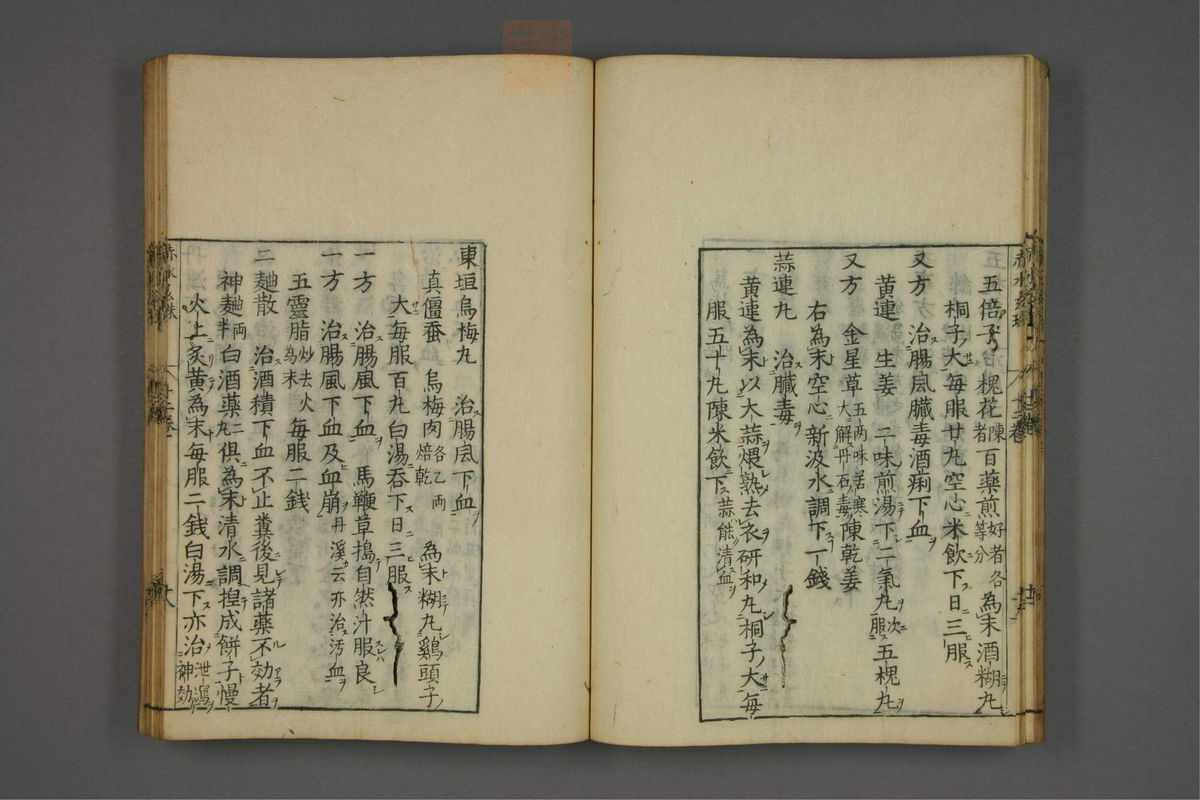 五倍子 槐花陳者百藥煎好者各等分為末酒糊丸
桐子大每服廿丸空心米飲下日三服
又方 治腸風臟毒酒痢下血
黃連 生姜 二味煎湯下二氣丸次服五槐丸
又方 金星草五両味苦寒大解丹石毒陳乾姜
右為末空心新汲水調下一錢
蒜連丸 治臟毒
黃連為末以大蒜煨熟去衣研和丸桐子大每
服五十丸陳米飲下蒜能清血
東垣烏梅丸 治腸風下血
真僵蚕 烏梅肉各乙両焙乾 為末糊丸鷄頭子
大每服百丸白湯吞下日三服
一方 治腸風下血 馬鞭草搗自然汁服良
一方 治腸風下血及血崩丹溪云亦治汚血
五靈脂炒去火為末每服二錢
二麯散 治酒積下血不止糞後見諸藥不効者
神麯両半白酒藥二丸俱為末清水調捏成餅子慢
火上炙黃為末每服二錢白湯下亦治泄瀉神効